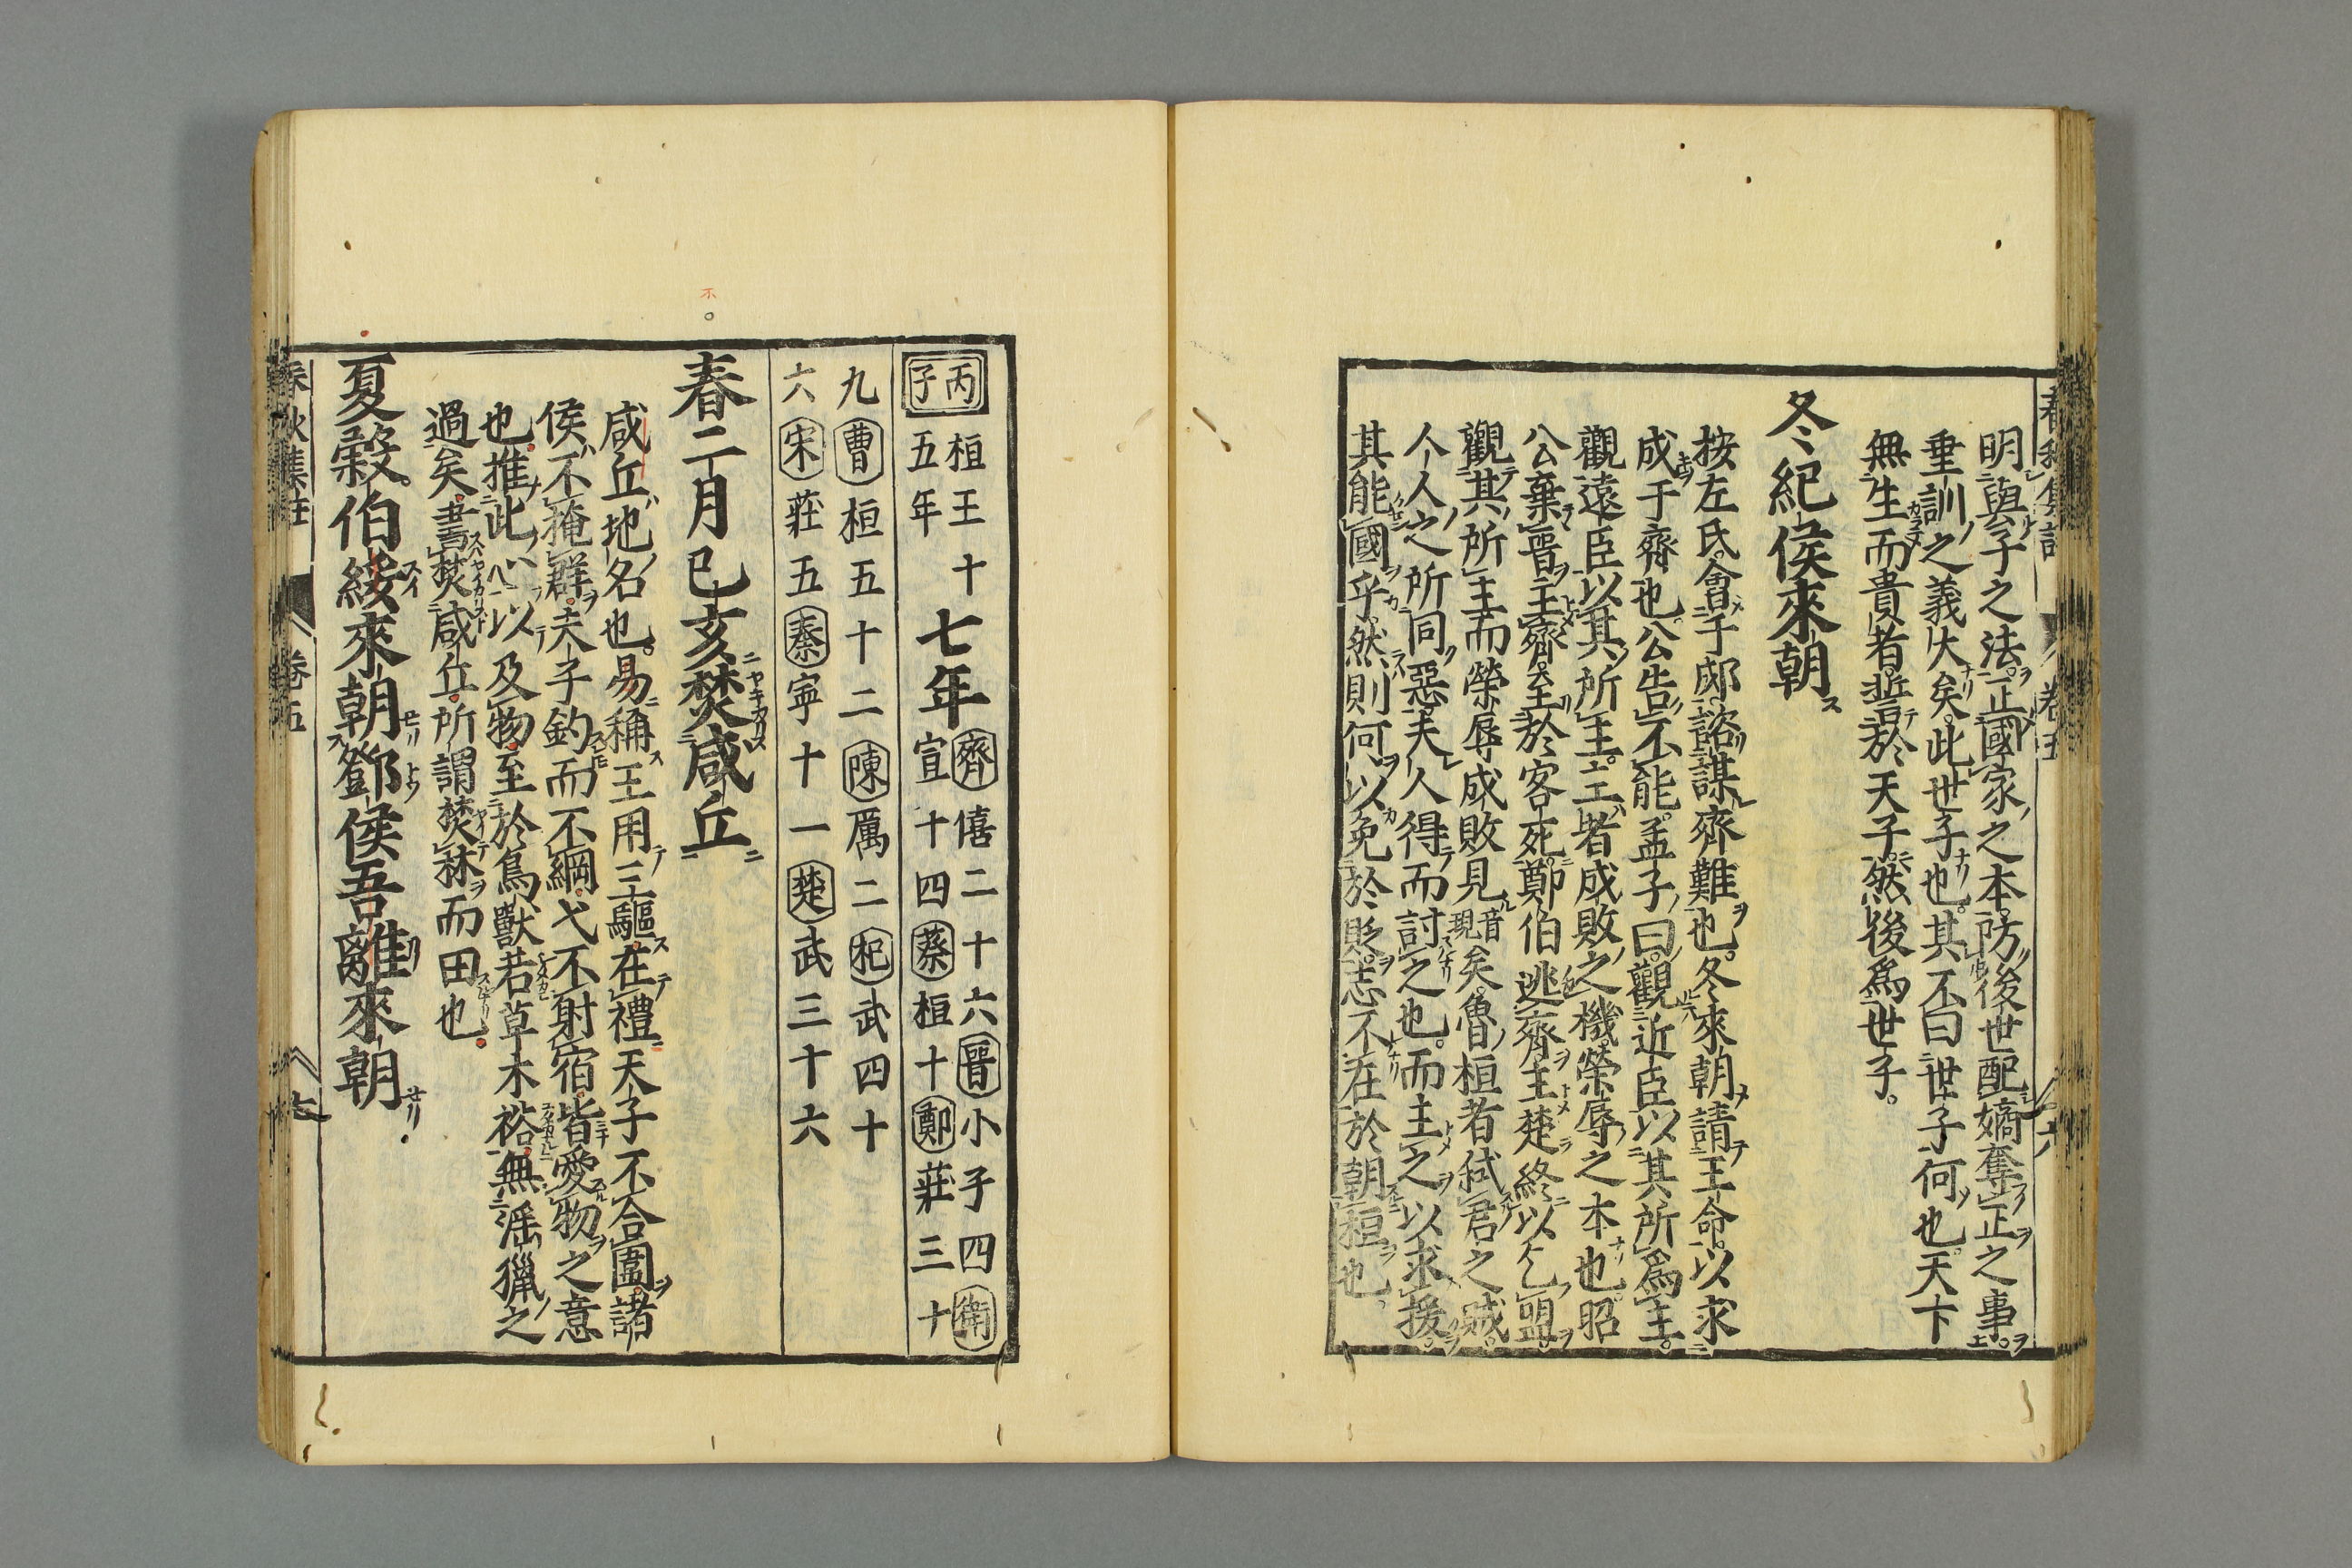 明與子之法正國家之本防後世配嫡奪正之事
垂訓之義大矣此世子也其不曰世子何也天下
無生而貴者誓於天子然後爲世子
冬紀侯來朝
按左氏會于郕諮謀齊難也冬來朝請王命以求
成于齊也公告不能孟子曰觀近臣以其所爲主
觀遠臣以其所主主者成敗之機榮辱之本也昭
公棄晉主齊至於客死鄭伯逃齊主楚終以乞盟
觀其所主而榮辱成敗見音現矣魯桓者弒君之賊
人人之所同惡夫人得而討之也而主之以求援
其能國乎然則何以免於貶志不在於朝桓也
丙子 桓王十五年 七年 齊僖二十六晉小子四衛宣十四蔡桓十鄭莊三十
九曹桓五十二陳厲二杞武四十
六宋莊五秦寧十一楚武三十六
春二月己亥焚咸丘
咸丘地名也易稱王用三驅在禮天子不合圍諸
侯不掩群夫子釣而不綱弋不射宿皆愛物之意
也推此心以及物至於鳥獸若草木裕無淫獵之
過矣書焚咸丘所謂焚林而田也
夏穀伯綏來朝鄧侯吾離來朝
春秋集註 卷五 七